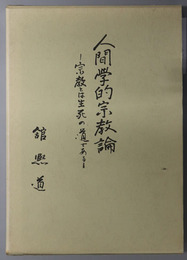 人間学的宗教論
―宗教とは生死の道である―
舘熙道